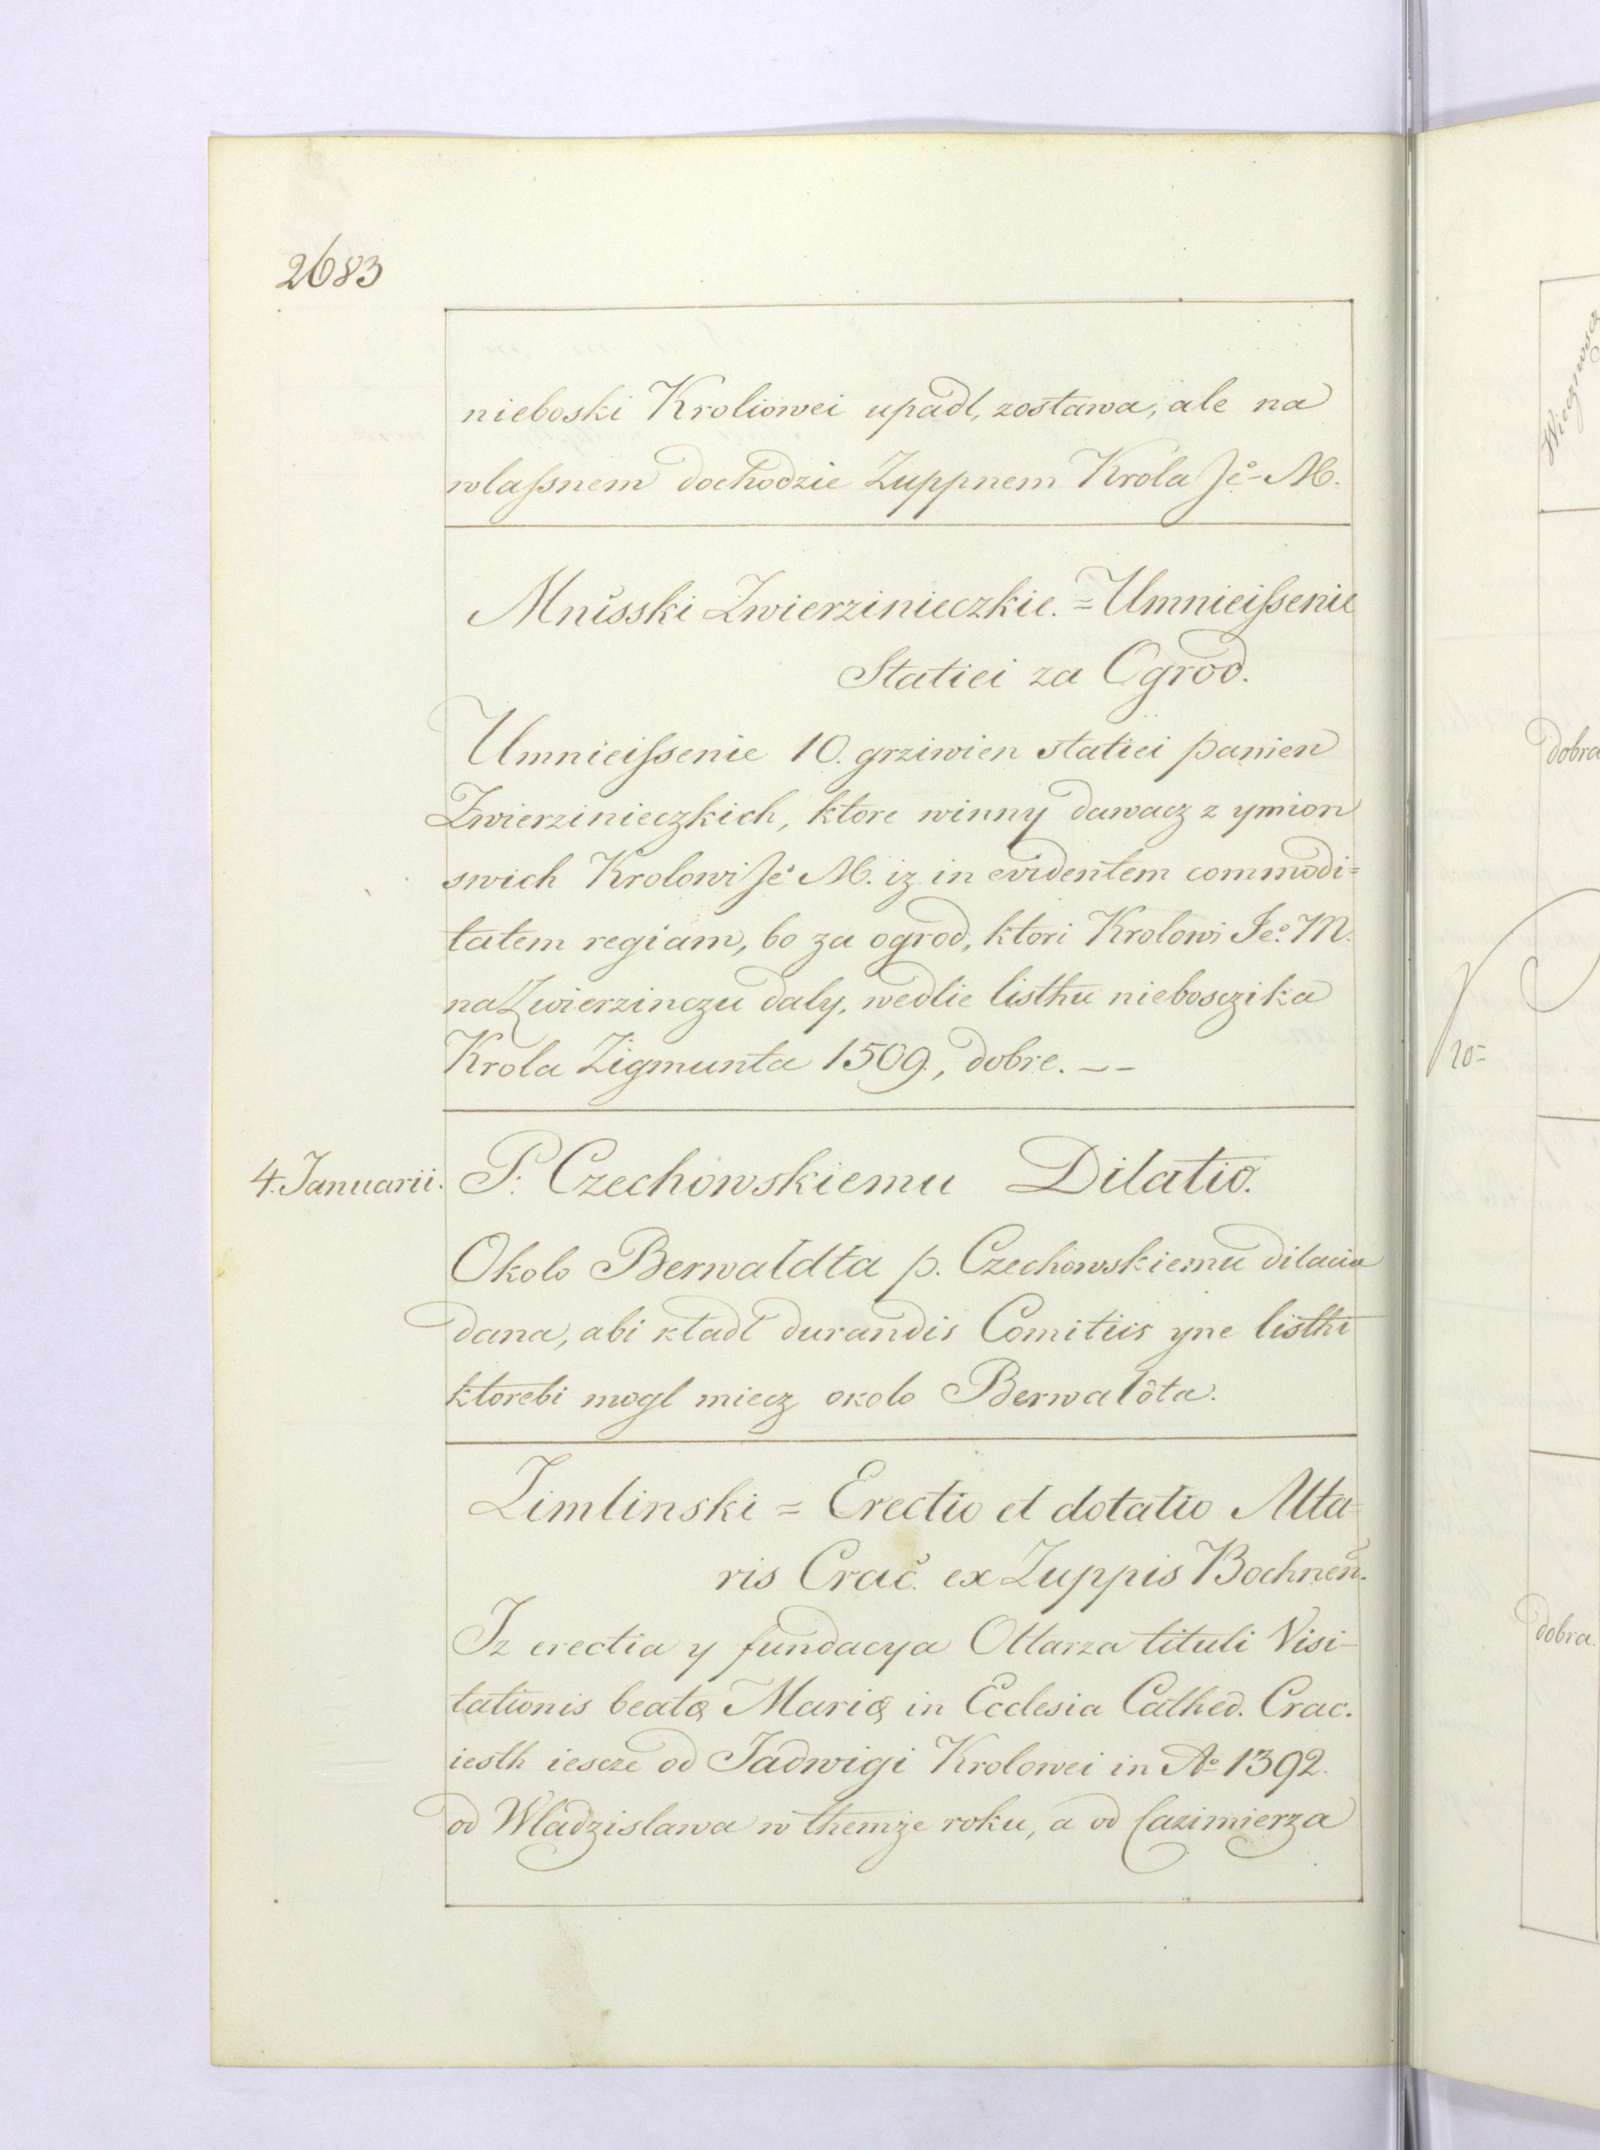 2683
nieboski Kroliowei upadl, zostawa, ale na
wlaſsnem dochodzie Zuppnem Krola Je° M.
Mnisski Zwierzinieczkie. = Umnieiſsenie
Statiei za Ogrod.
Umnieiſsenie 10. grziwien statiei panien
Zwierzinieczkich, ktore winny dawacz z ymion
swich Krolowi Je° M. iz in evidentem commodi=
tatem regiam, bo za ogrod, ktori Krolowi Je° M.
na Zwierzinczu daly, wedlie listhu niebosczika
Krola Zigmunta 1509, dobre. — —
4. Januarii. P. Czechowskiemu Dilatio.
Okolo Berwaldta p. Czechowskiemu dilacia
dana, abi kladl durandis Comitiis yne listhi
ktorebi mogl miecz okolo Berwaldta.
Zimlinski = Erectio et dotatio Alta-
ris Crac. ex Zuppis Bochnen.
Iz erectia y fundacya Oltarza tituli Visi-
tationis beatę Marię in Ecclesia Cathed. Crac.
iesth iescze od Jadwigi Krolowei in A° 1392.
od Wladzislawa w themże roku, a od Cazimierza
dobra
20=
dobra.